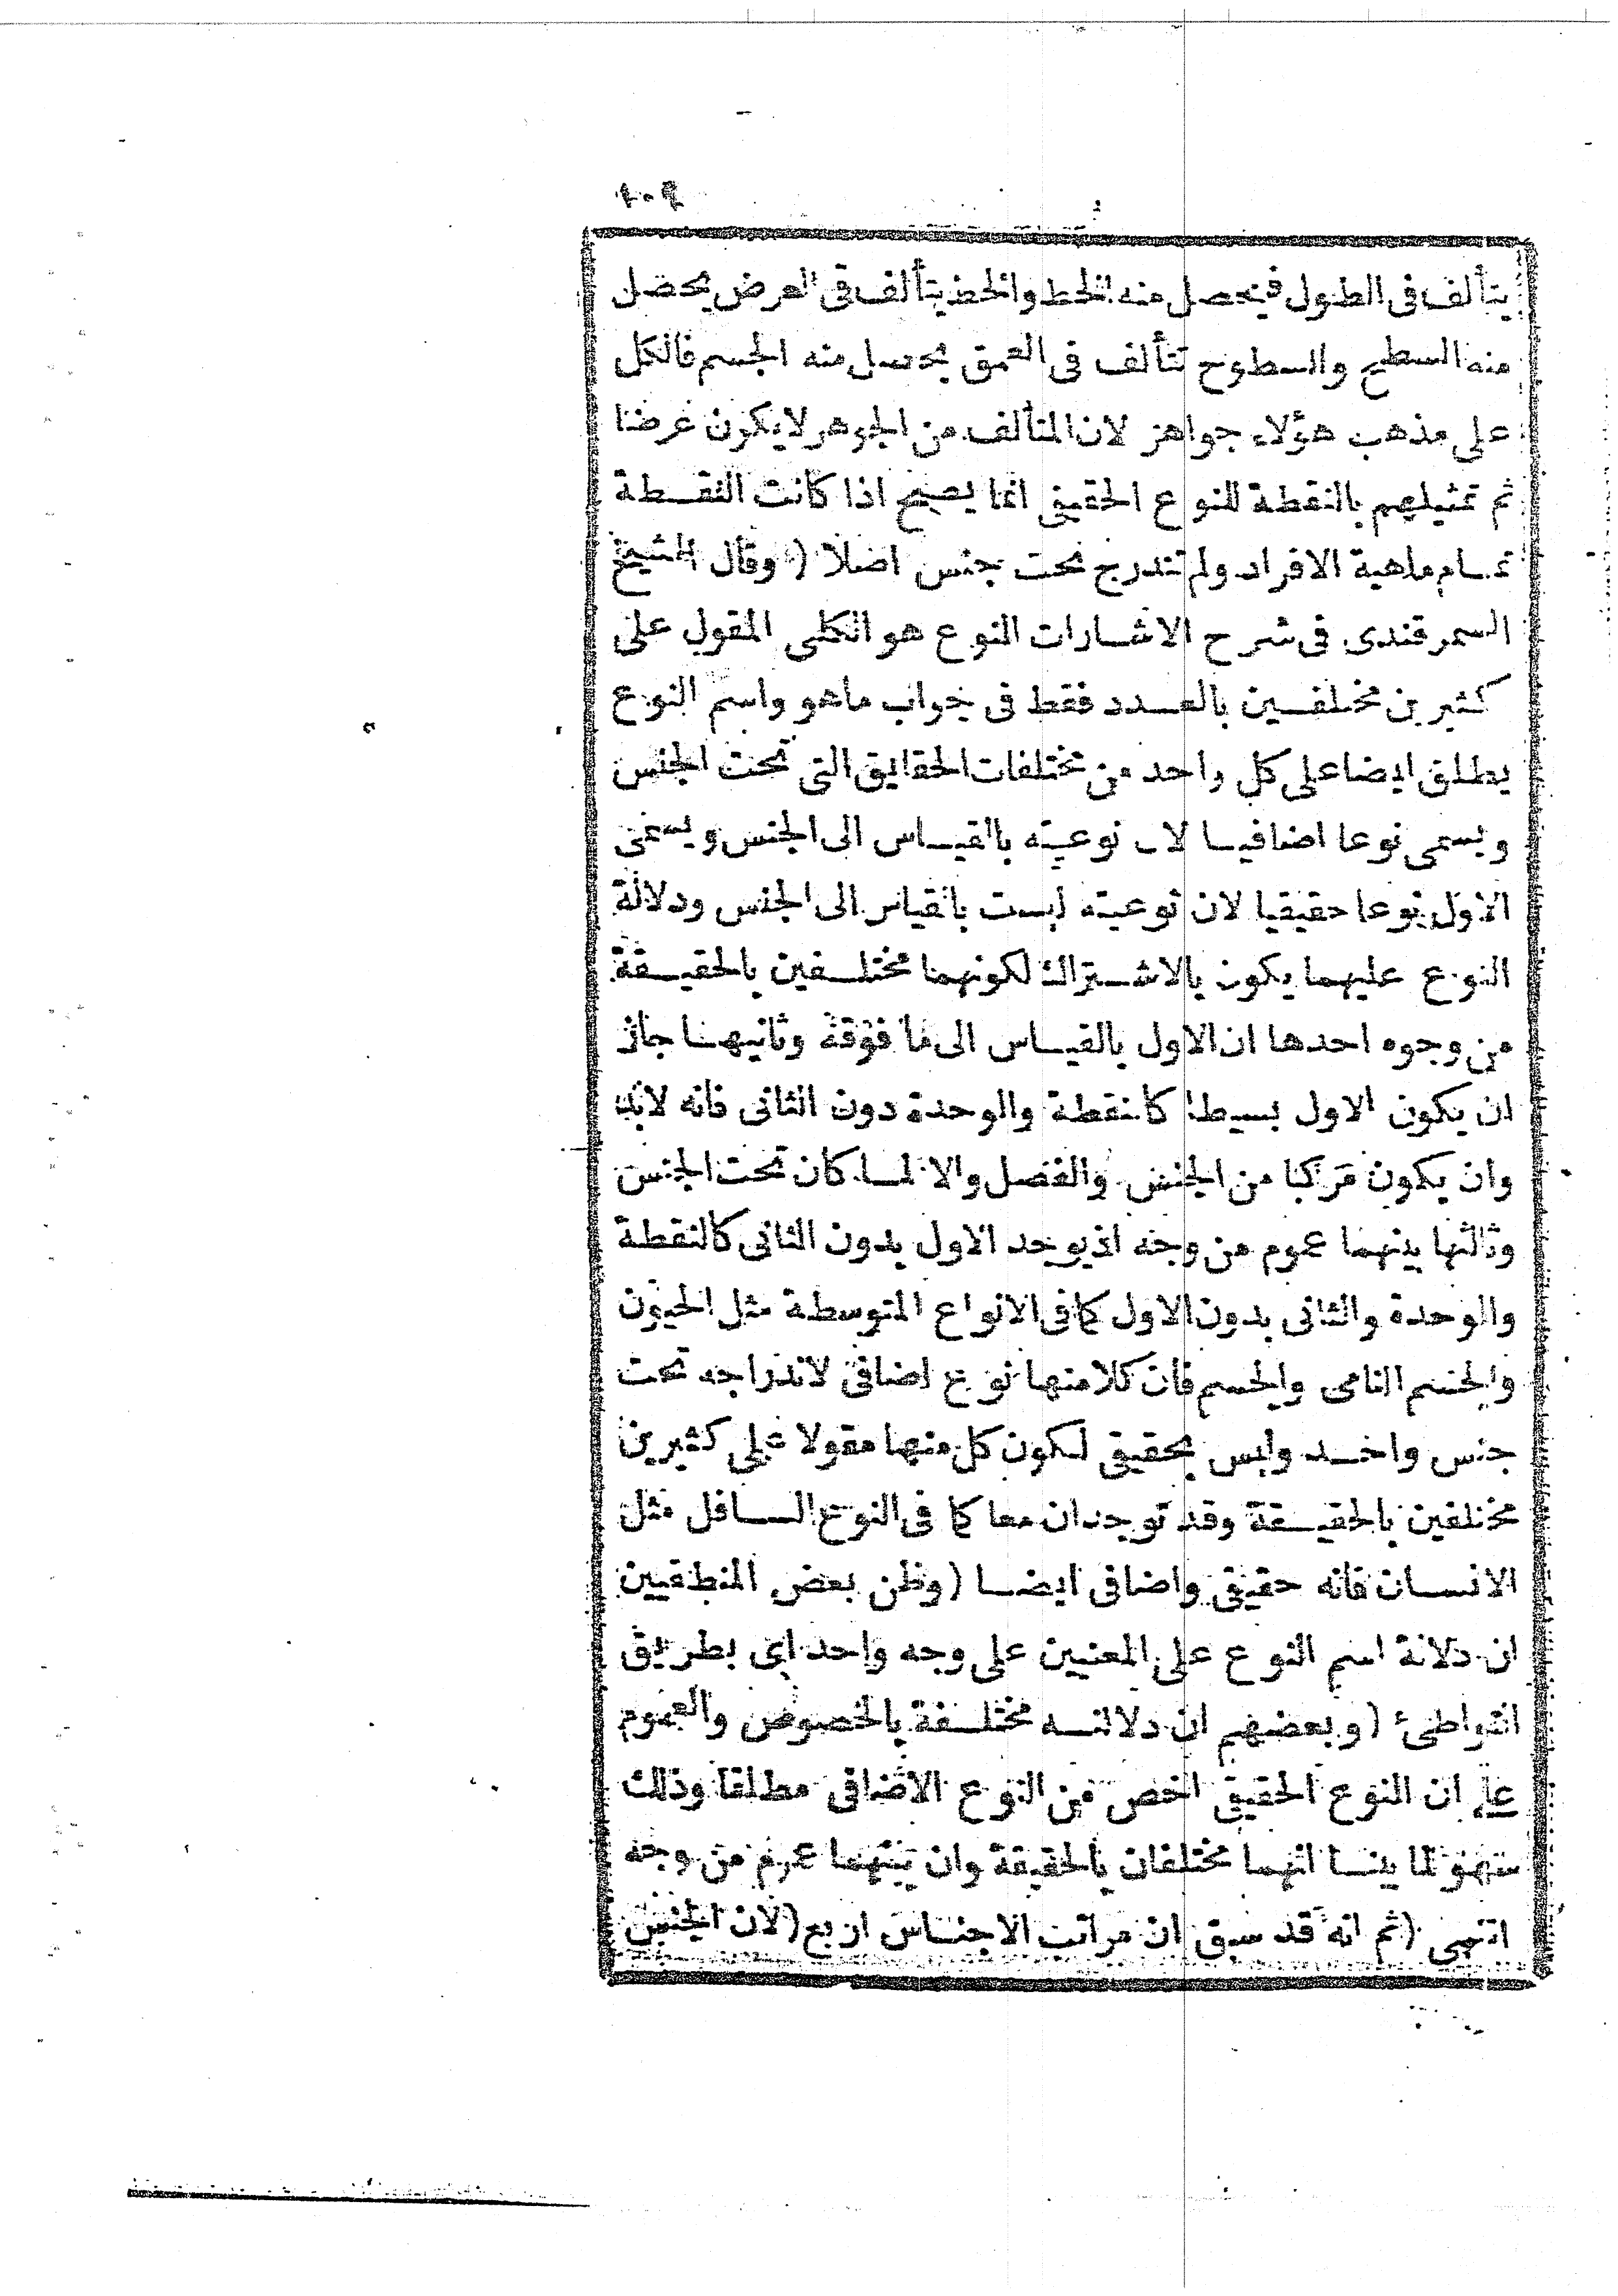 يتألف فى الطول فيحصل منه الخط والخط يتألف فى العرض يحصل
منه السطح والسطوح تتألف فى العمق يحصل منه الجسم فالكل
على مذهب هؤلاء جواهر لان المتألف من الجوهر لا يكون عرضا
ثم تمثيلهم بالنقطة للنوع الحقيقى انما يصح اذا كانت النقطة
تمام ماهية الافراد ولم تندرج تحت جنس اصلا (وقال الشيخ
السمرقندى فى شرح الاشارات النوع هو الكلى المقول على
كثيرين مختلفين بالعدد فقط فى جواب ماهو واسم النوع
يطلق ايضا على كل واحد من مختلفات الحقايق التى تحت الجنس
ويسمى نوعا اضافيا لان نوعيته بالقياس الى الجنس ويسمى
الاول نوعا حقيقيا لان نوعيته ليست بالقياس الى الجنس ودلالة
النوع عليهما يكون بالاشتراك لكونهما مختلفين بالحقيقة
من وجوه احدها ان الاول بالقياس الى ما فوقه وثانيهما جاز
ان يكون الاول بسيطا كالنقطة والوحدة دون الثانى فانه لابد
وان يكون مركبا من الجنس والفصل والا لما كان تحت الجنس
وثالثها بينهما عموم من وجه اذ يوجد الاول بدون الثانى كالنقطة
والوحدة والثانى بدون الاول كما فى الانواع المتوسطة مثل الحيون
والجسم النامى والجسم فان كلا منها نوع اضافى لاندراجه تحت
جنس واحد وليس بحقيقى لكون كل منها مقولا على كثيرين
مختلفين بالحقيقة وقد توجدان معا كما فى النوع السافل مثل
الانسان فانه حقيقى واضافى ايضا (وظن بعض المنطقيين
ان دلالة اسم النوع على المعنيين على وجه واحد اى بطريق
التواطئ (وبعضهم ان دلالته مختلفة بالخصوص والعموم
على ان النوع الحقيقى اخص من النوع الاضافى مطلقا وذلك
سهو لما بينا انهما مختلفان بالحقيقة وان بينهما عموم من وجه
انتهى (ثم انه قد سبق ان مراتب الاجناس اربع (لان الجنس